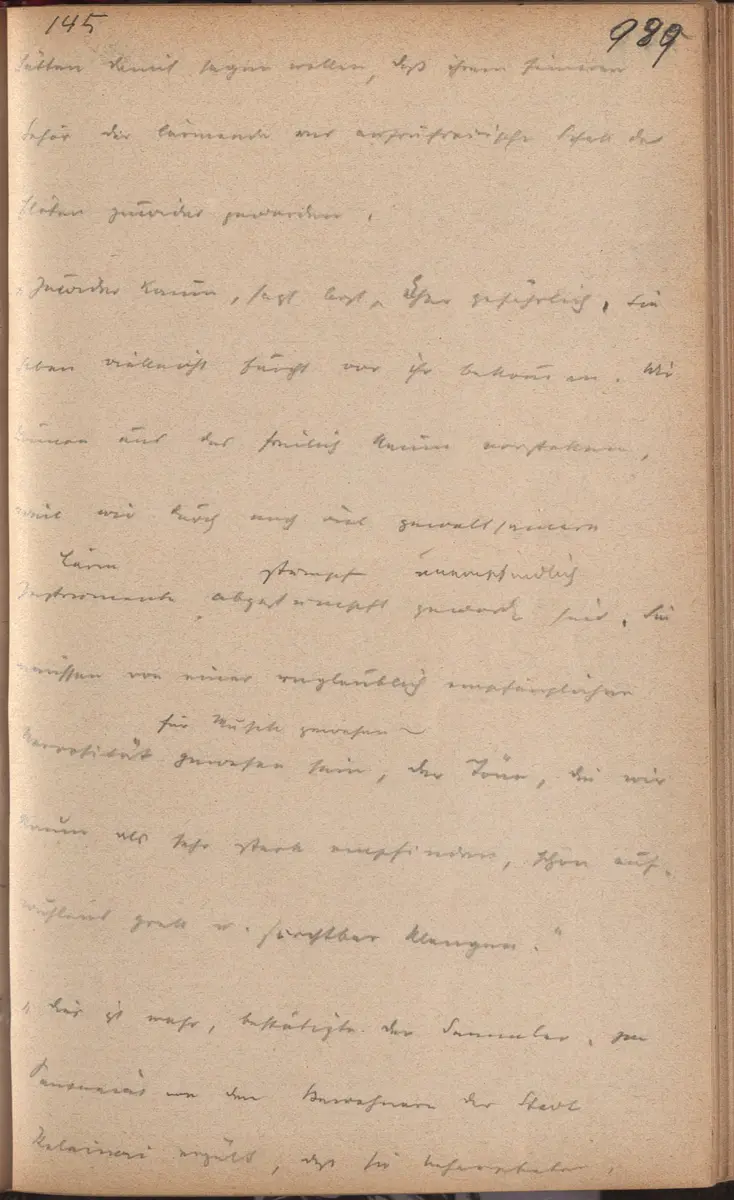 145
989
hätten damit sagen wollen, daß ihrem feineren
Gehör der lärmende und aufrührerische Schall der
Flöten zuwider geworden.
"Zuwider kaum, sagt
eher gefährlich. Sie
haben vielleicht Furcht vor ihr bekommen. Wir
können uns das freilich kaum vorstellen,
weil wir durch noch viel gewaltsamere
Lärm stumpf unempfindlich
Instrumente abgestumpft geword sind. Sie
müssen von einer unglaublich empfänglichen
für Musik gewesen
Nervosität gewesen sein, der Töne, die wir
kaum als sehr stark empfinden, schon auf-
wühlend grell u. furchtbar klangen."
"Das ist wahr, bestätigte der Sammler.
Pausanias von den Bewohnern der Stadt
erzält, daß sie behaupteten,